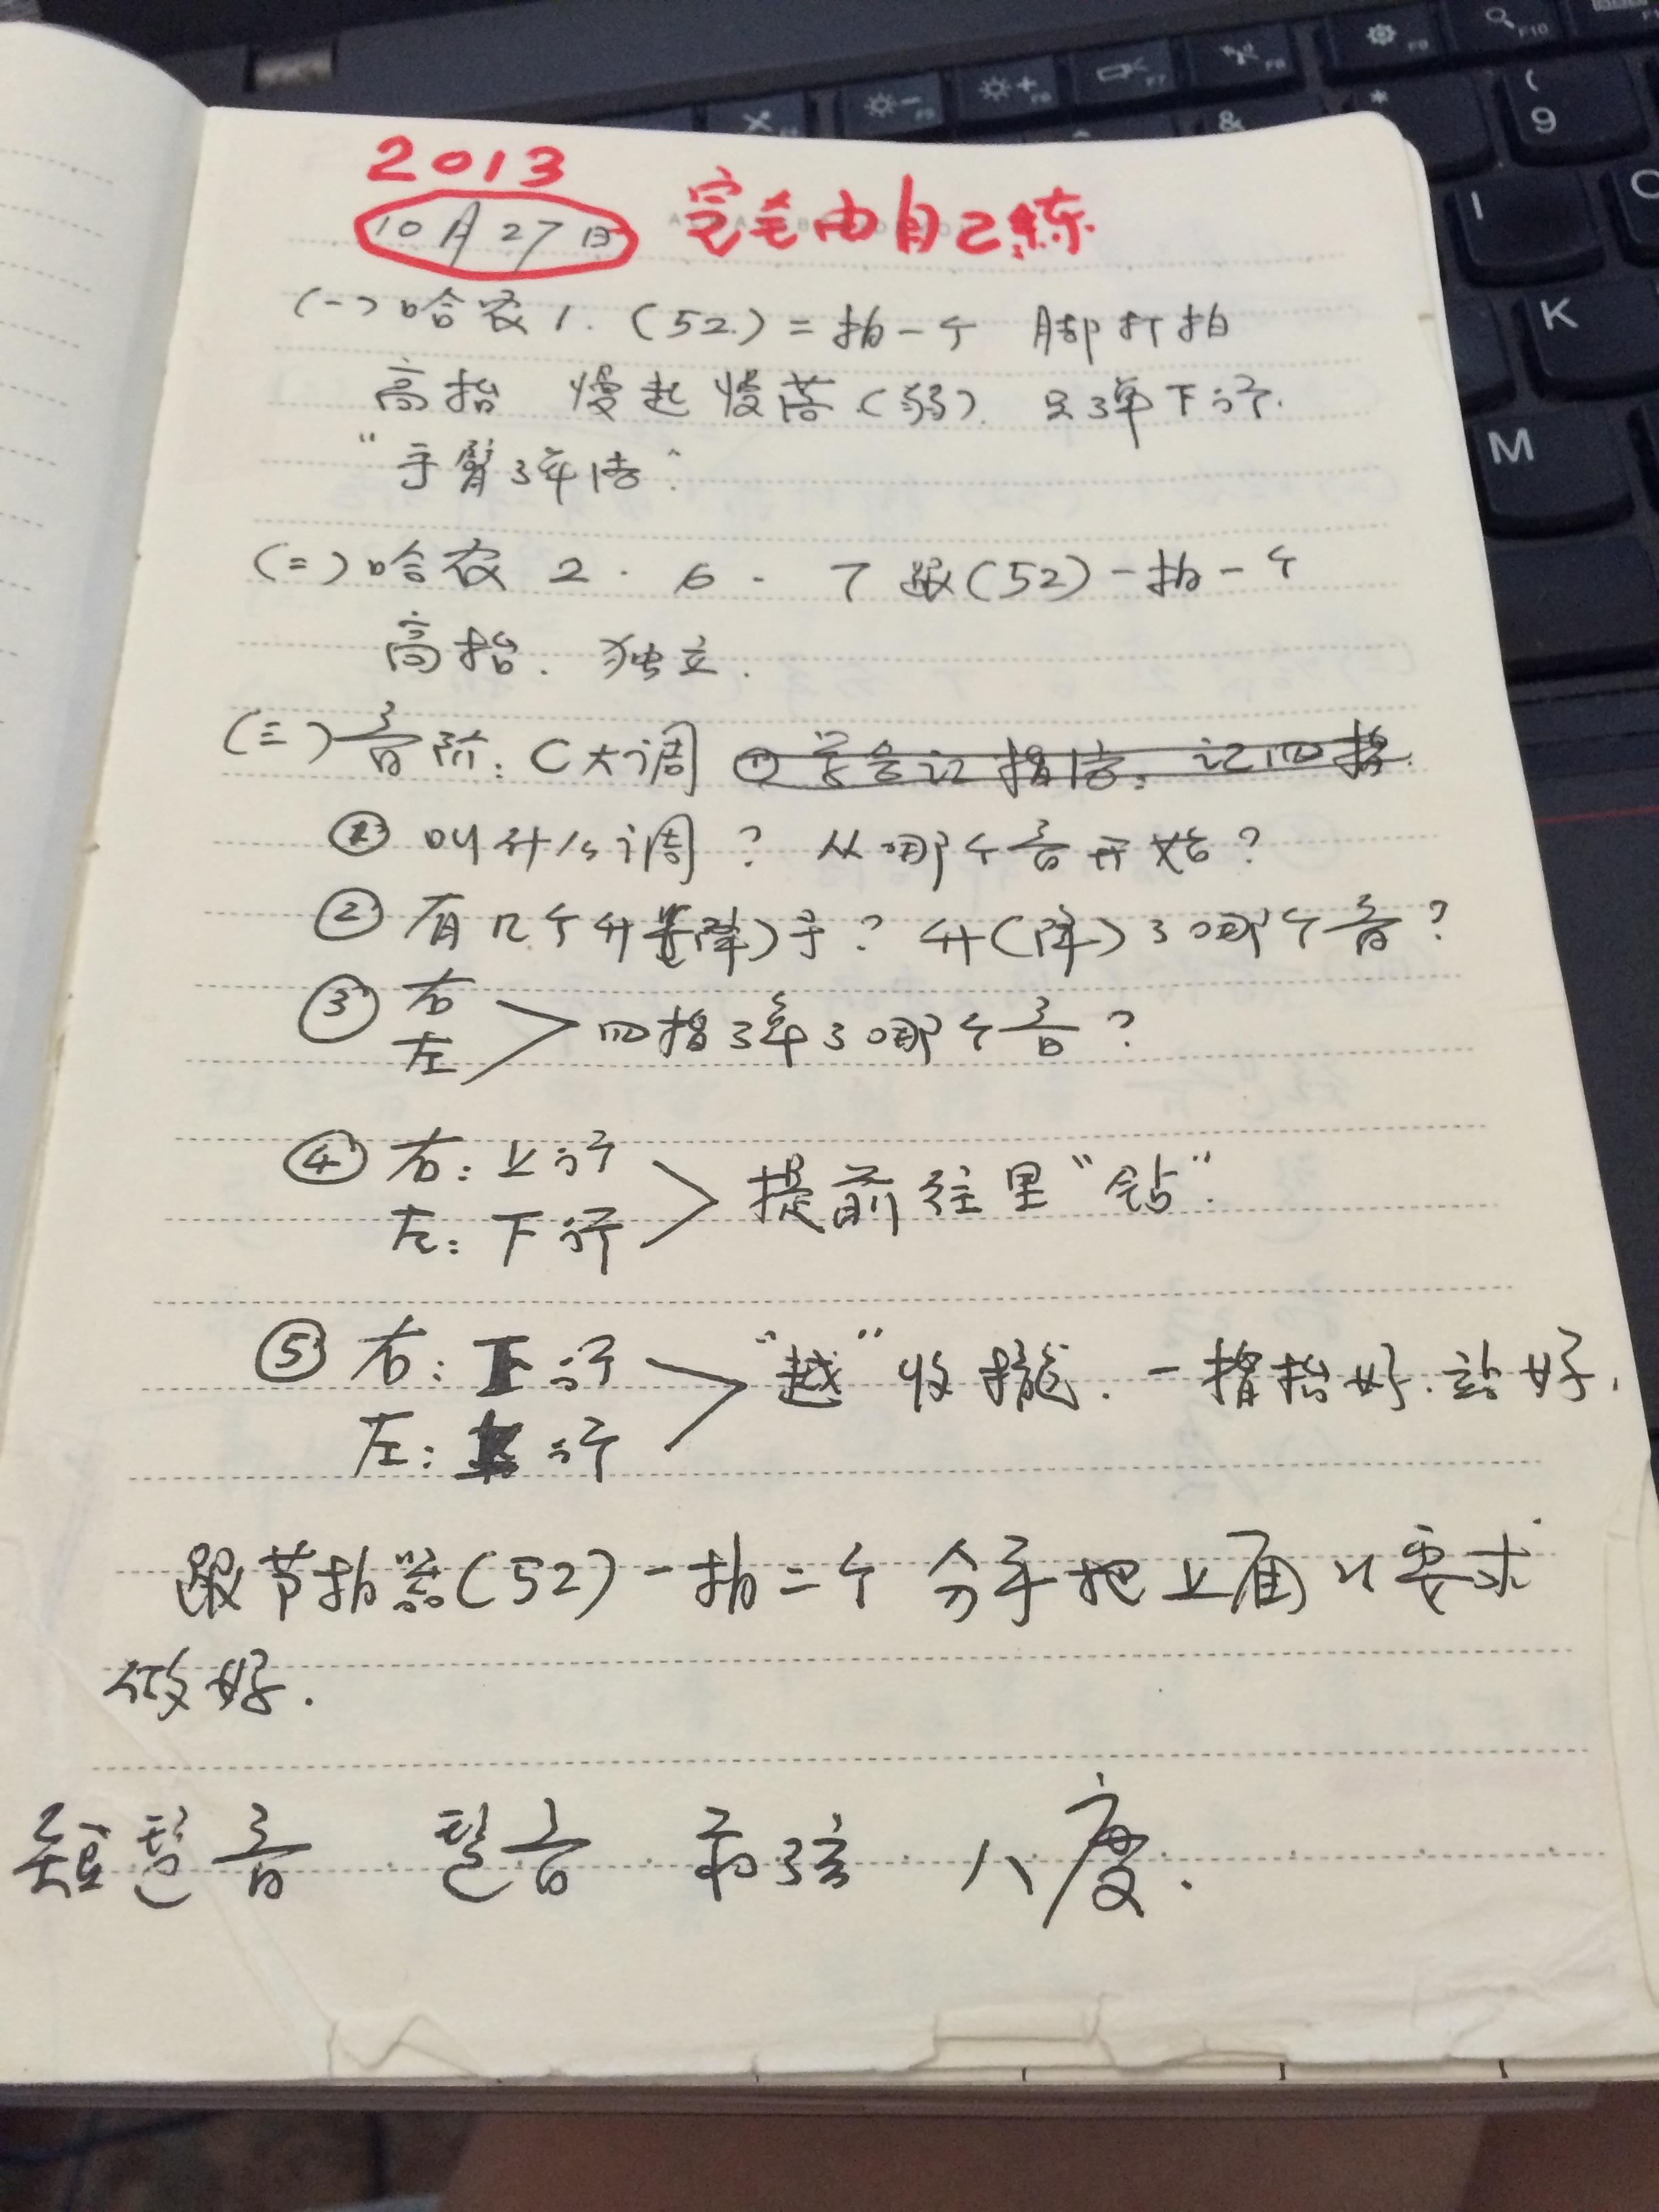 2013
10月27日 完全由自己练
(一) 哈农1. (52) = 拍一个 脚打拍
高抬 慢起慢落(弱). 只弹下行.
“手臂弹信”
(二) 哈农 2 · 6 · 7 跟(52)一拍一个
高抬. 独立.
(三) 音阶: C大调 ① 学会记指法, 记四指.
① 叫什么调? 从哪个音开始?
② 有几个升(降)号? 升(降)了哪个音?
③ 右
左 > 四指弹了哪个音?
④ 右: 上行
左: 下行 > 提前往里“钻”.
⑤ 右: 下行
左: 上行 > “越” 收拢. 一指抬好. 站好.
跟节拍器(52)一拍二个 分手把上面的要求
做好.
短琶音 琶音 和弦 八度.
F9
F10
F8
F7
F6
F5
&
*
(
9
I
O
K
M